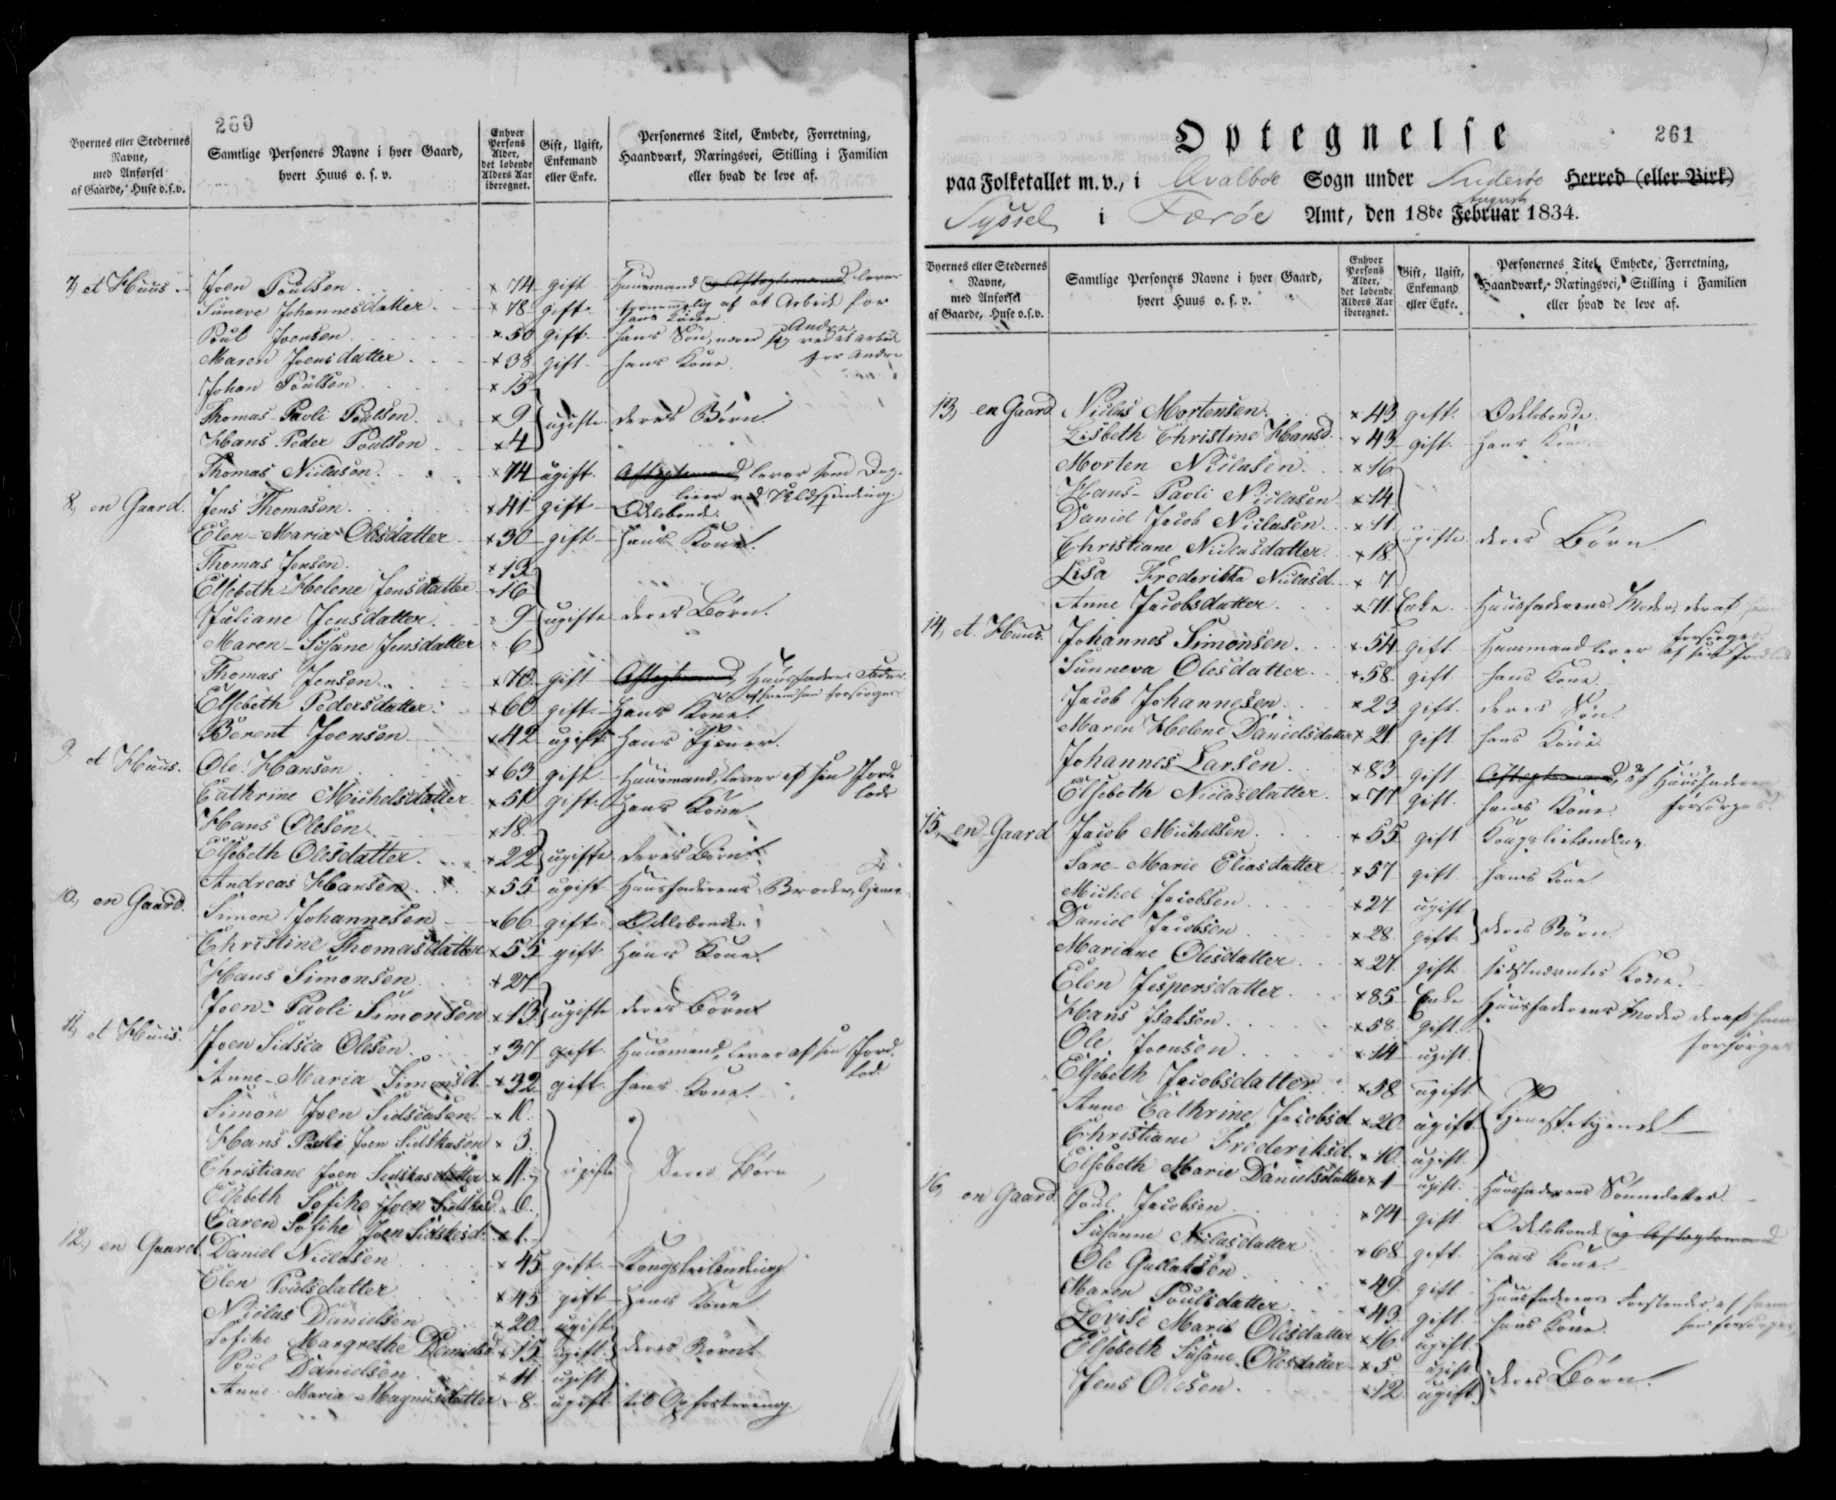 260
Byernes eller Stedernes Navne, med Anførsel af Gaarde, Huse o.s.v.
Samtlige Personers Navne i hver Gaard, hvert Huus o. s. v.
Enhver Persons Alder, det løbende Alders Aar iberegnet.
Gift, Ugift, Enkemand eller Enke.
Personernes Titel, Embede, Forretning, Haandværk, Næringsvei, Stilling i Familien eller hvad de leve af.
7, et Huus Joen Poulsen × 74 gift Huusmand lever
Sunneve Johannesdatter × 78 gift hans Kone
Poul Joensen × 50 gift hans Søn,
Maren Joensdatter × 38 gift hans Kone
Johan Poulsen × 15
Thomas Pauli Poulsen × 9 ugifte deres Børn
Hans Peder Poulsen × 4
Thomas Niclasen × 74 ugift Aftægtsmand, lever som
8, en Gaard. Jens Thomasen × 41 gift Odelsbonde.
Elen Maria Olesdatter × 30 gift hans Kone.
Thomas Jensen × 13
Elsebeth Helene Jensdatter × 16
Juliane Jensdatter 9 ugifte deres Børn
Maren Susane Jensdatter 6
Thomas Jensen × 70 gift Aftægtsmand, Huusfaderens Fader
Elsebeth Pedersdatter × 60 gift hans Kone
Berent Joensen × 42 ugift hans Tjener.
9, et Huus. Ole Hansen × 63 gift Huusmand, lever af sin Jordlod
Cathrine Michelsdatter × 51 gift hans Kone
Hans Olesen × 18
Elsebeth Olesdatter × 22 ugifte deres Børn
Andreas Hansen × 55 ugift Huusfaderens Broder,
10, en Gaard. Simon Johannesen × 66 gift Odelsbonde
Christine Thomasdatter × 55 gift hans Kone
Hans Simonsen × 27
Joen Pauli Simonsen × 13 ugifte deres Børn
11, et Huus. Joen Sidsca Olesen × 37 gift Huusmand, lever af sin Jordlod
Anne Maria Simonsd. × 32 gift hans Kone
Simon Joen Sidscasen × 10
Hans Pauli Joen Sidskasen × 3
Christiane Joen Sidskasdatter × 11 ugifte Deres Børn
Elsebeth Sofihe Joen × 6
Caren Sofihe Joen × 1
12, en Gaard Daniel Niclasen × 45 gift
Elen Poulsdatter × 45 gift hans Kone
Niclas Danielsen × 20 ugift
Sofihe Margrethe × 15 ugift deres Børn
Poul Danielsen × 11 ugift
Anne Maria Magnusdatter × 8 ugift til Opfostring
Optegnelse
261
paa Folketallet m.v., i Qvalböe Sogn under Suderöe Herred (eller Birk)
Syssel i Færöe Amt, den 18de Februar August 1834.
Byernes eller Stedernes Navne, med Anførsel af Gaarde, Huse o.s.v.
Samtlige Personers Navne i hver Gaard, hvert Huus o. s. v.
Enhver Persons Alder, det løbende Alders Aar iberegnet.
Gift, Ugift, Enkemand eller Enke.
Personernes Titel, Embede, Forretning, Haandværk, Næringsvei, Stilling i Familien eller hvad de leve af.
13, en Gaard Niclas Mortensen × 43 gift Odelsbonde
Lisbeth Christine Hansd. × 43 gift hans Kone
Morten Niclasen × 16
Hans Pauli Niclasen × 14
Daniel Jacob Niclasen × 11 ugifte deres Børn
Christiane Niclasdatter × 18
Lisa Frederikka Niclasd. × 7
Anne Jacobsdatter × 71 Enke Huusfaderens Moder,
14, et Huus. Johannes Simonsen × 54 gift Huusmand lever af sin
Sunneva Olesdatter × 58 gift hans Kone
Jacob Johannesen × 23 gift deres Søn
Maren Helene Danielsdatter × 21 gift hans Kone
Johannes Larsen × 83 gift Aftægtsmand, af Huusfaderen forsørges
Elsebeth Niclasdatter × 77 gift hans Kone
15, en Gaard Jacob Michelsen × 55 gift
Sare Marie Eliasdatter × 57 gift hans Kone
Michel Jacobsen × 27 ugift
Daniel Jacobsen × 28 gift deres Børn
Mariane Olesdatter × 27 gift sidstnævntes Kone
Elen Jespersdatter × 85 Enke Huusfaderens Moder
Hans Isaksen × 58 gift
Ole Joensen × 14 ugift
Elsebeth Jacobsdatter × 58 ugift Tjenestetyende
Anne Cathrine Jacobsd. × 20 ugift
Christiane Frederiksd. × 10 ugift
Elsebeth Marie Danielsdatter × 1 ugift Huusfaderens Sønnedatter
16, en Gaard. Poul Jacobsen × 74 gift Odelsbonde og Aftægtsmand
Susanne Niclasdatter × 68 gift hans Kone
Ole × 49 gift Huusfaderens
Maren Poulsdatter × 43 gift hans Kone
Lovise Marie Olesdatter × 16 ugift
Elsebeth Susane Olesdatter × 5 ugift deres Børn
Jens Olesen × 12 ugift